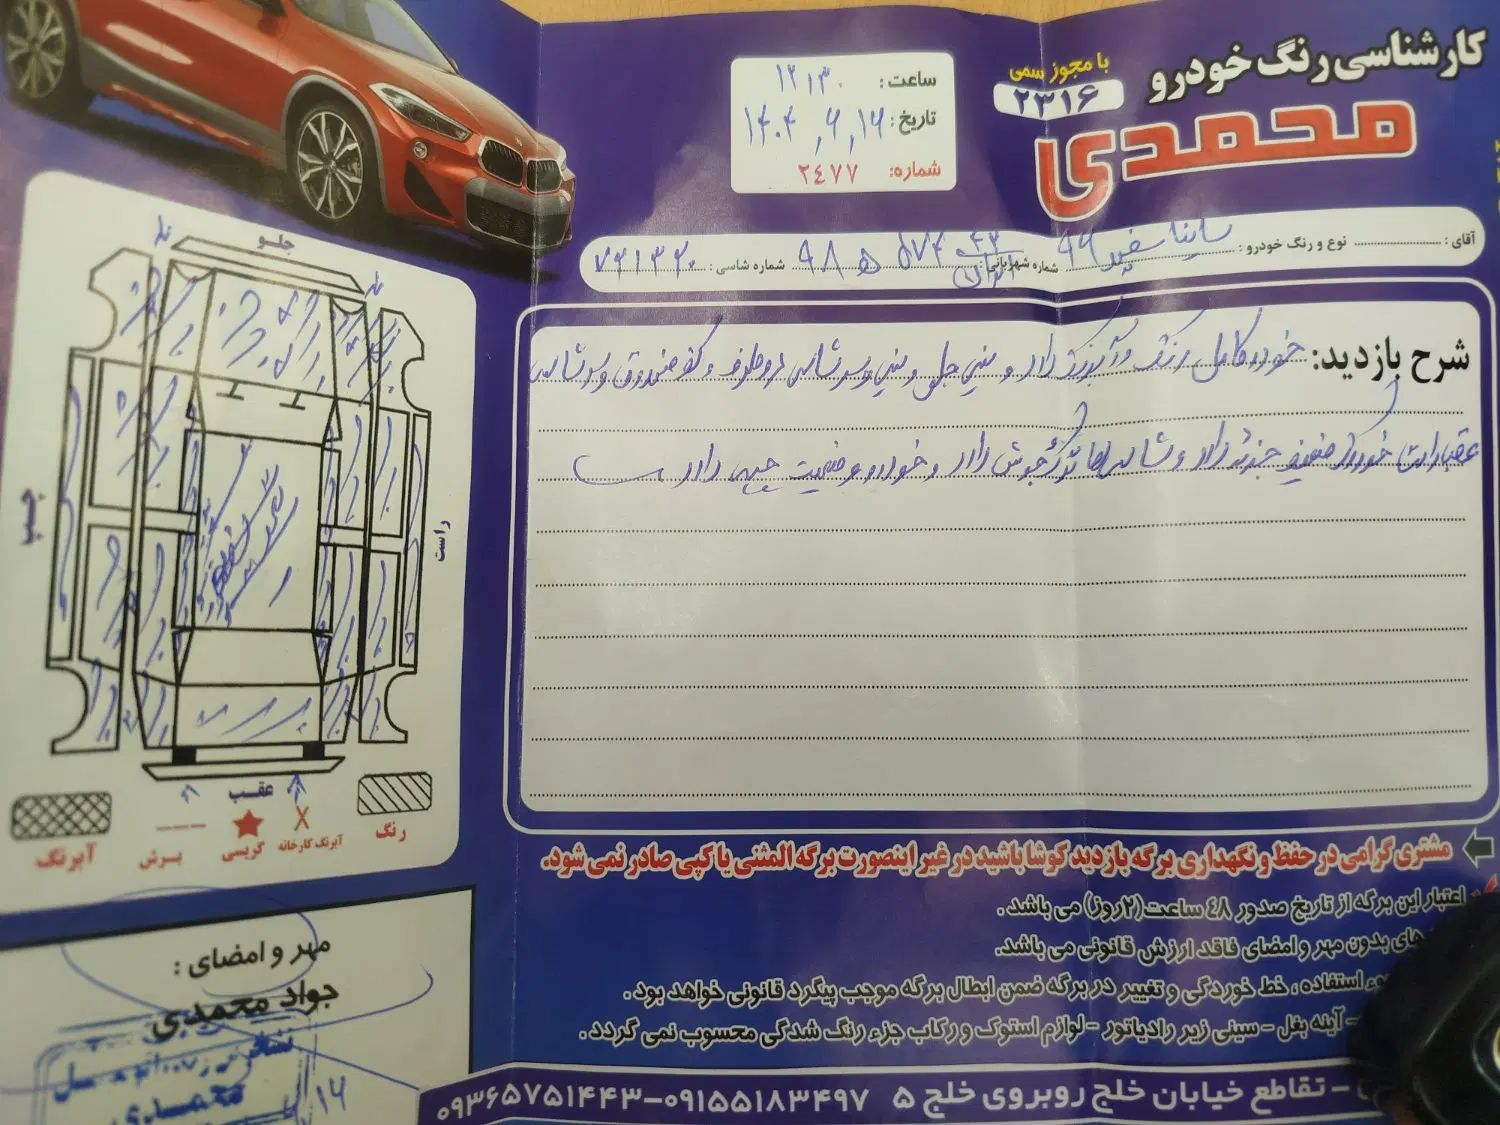 کارشناسی رنگ خودرو
با مجوز رسمی
۲۳۱۶
محمدی
ساعت: ۱۲:۳۰
تاریخ:
شماره: ۲۴۷۷
آقای: نوع و رنگ خودرو: ساینا سفید ۹۹ شماره شهربانی: ایران ۵۷۴ ھ ۹۸ شماره شاسی: ۷۲۱۳۲۰
شرح بازدید: خودرو کامل رنگ و آبرنگ دارد و سینی جلو و سینی و سرشاسی دو طرف و کف صندوق و سرشاسی
عقب خوردگی ضعیف جزئی دارد و خودرو وضعیت چپی دارد
جلو
چپ
راست
عقب
رنگ
آبرنگ کارخانه
گریسی
برش
آبرنگ
مشتری گرامی در حفظ و نگهداری برگه بازدید کوشا باشید در غیر اینصورت برگه المثنی یا کپی صادر نمی شود.
اعتبار این برگه از تاریخ صدور ۴۸ ساعت(۲روز) می باشد.
بدون مهر و امضای فاقد ارزش قانونی می باشد.
استفاده، خط خوردگی و تغییر در برگه ضمن ابطال برگه موجب پیگرد قانونی خواهد بود.
- آینه بغل - سینی زیر رادیاتور - لوازم استوک و رکاب جزء رنگ شدگی محسوب نمی گردد.
مهر و امضای:
جواد محمدی
محمدی
- تقاطع خیابان خلج روبروی خلج ۵ ۰۹۱۵۵۱۸۳۴۹۷-۰۹۳۶۵۷۵۱۴۴۳